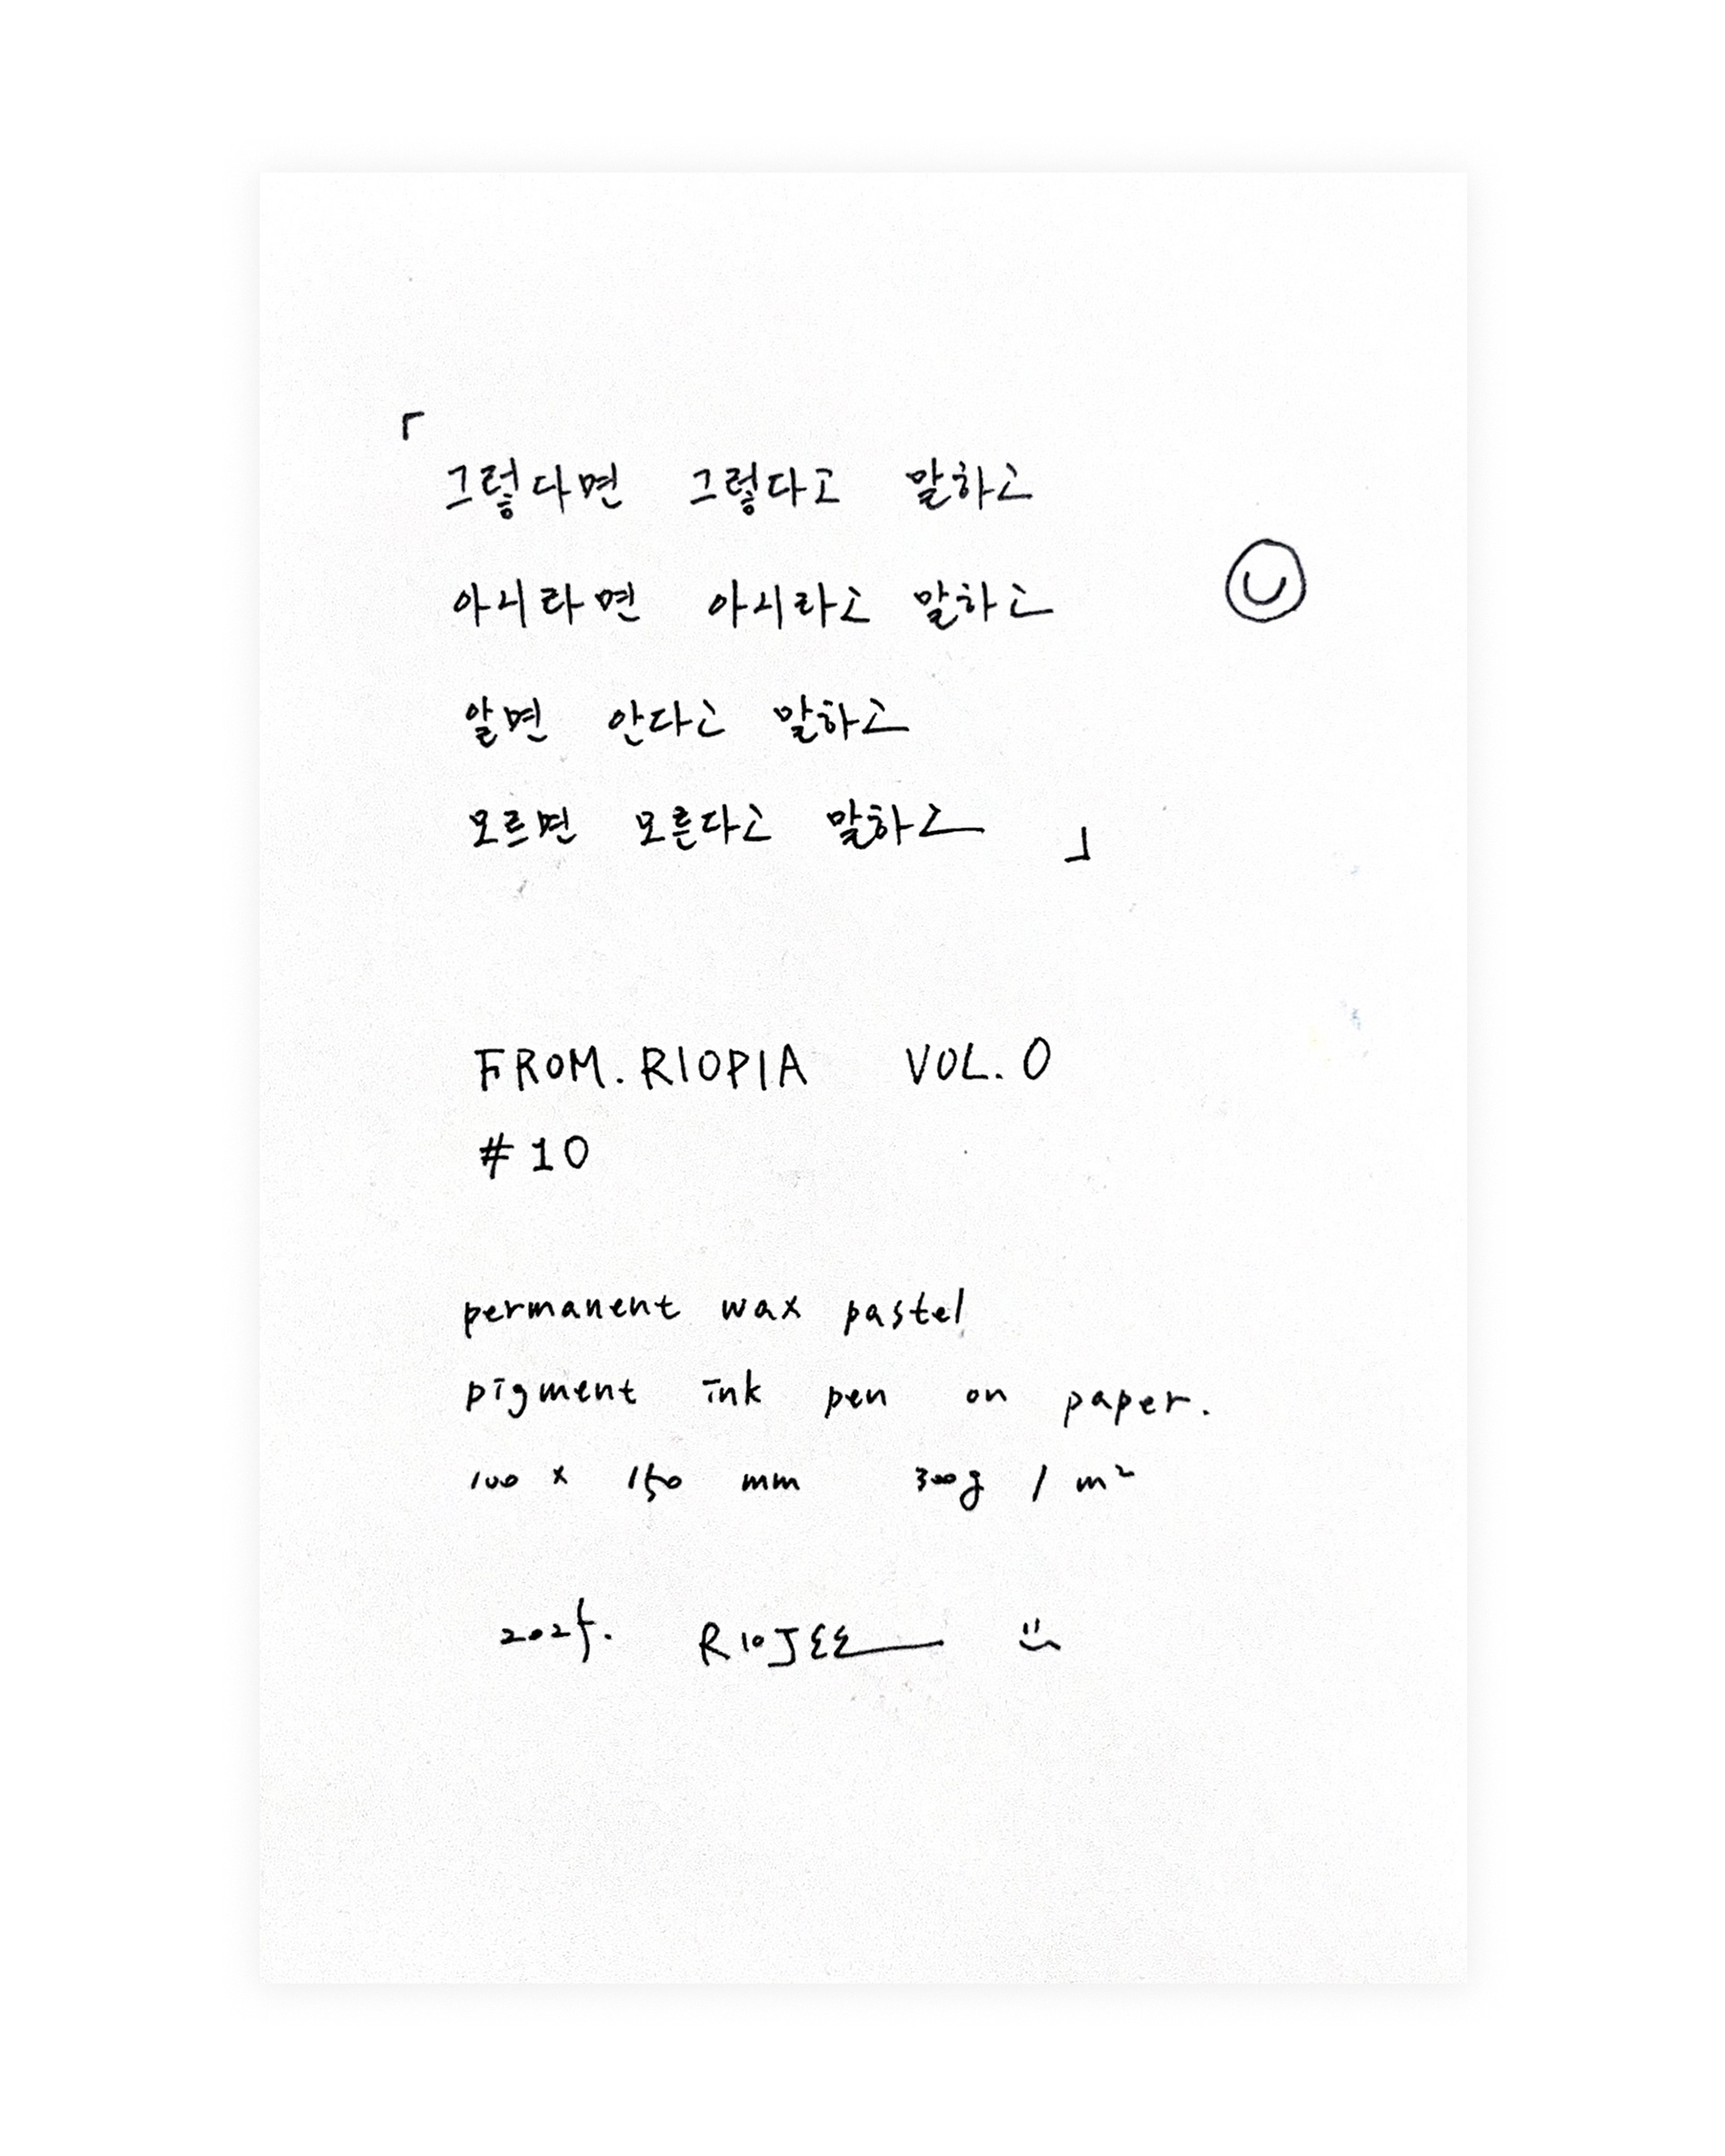 「
그렇다면 그렇다고 말하고
아니라면 아니라고 말하고
알면 안다고 말하고
모르면 모른다고 말하고 」
FROM. RIOPIA VOL. 0
#10
permanent wax pastel
pigment ink pen on paper.
100 x 150 mm 300g / m²
2025. RIOJEE